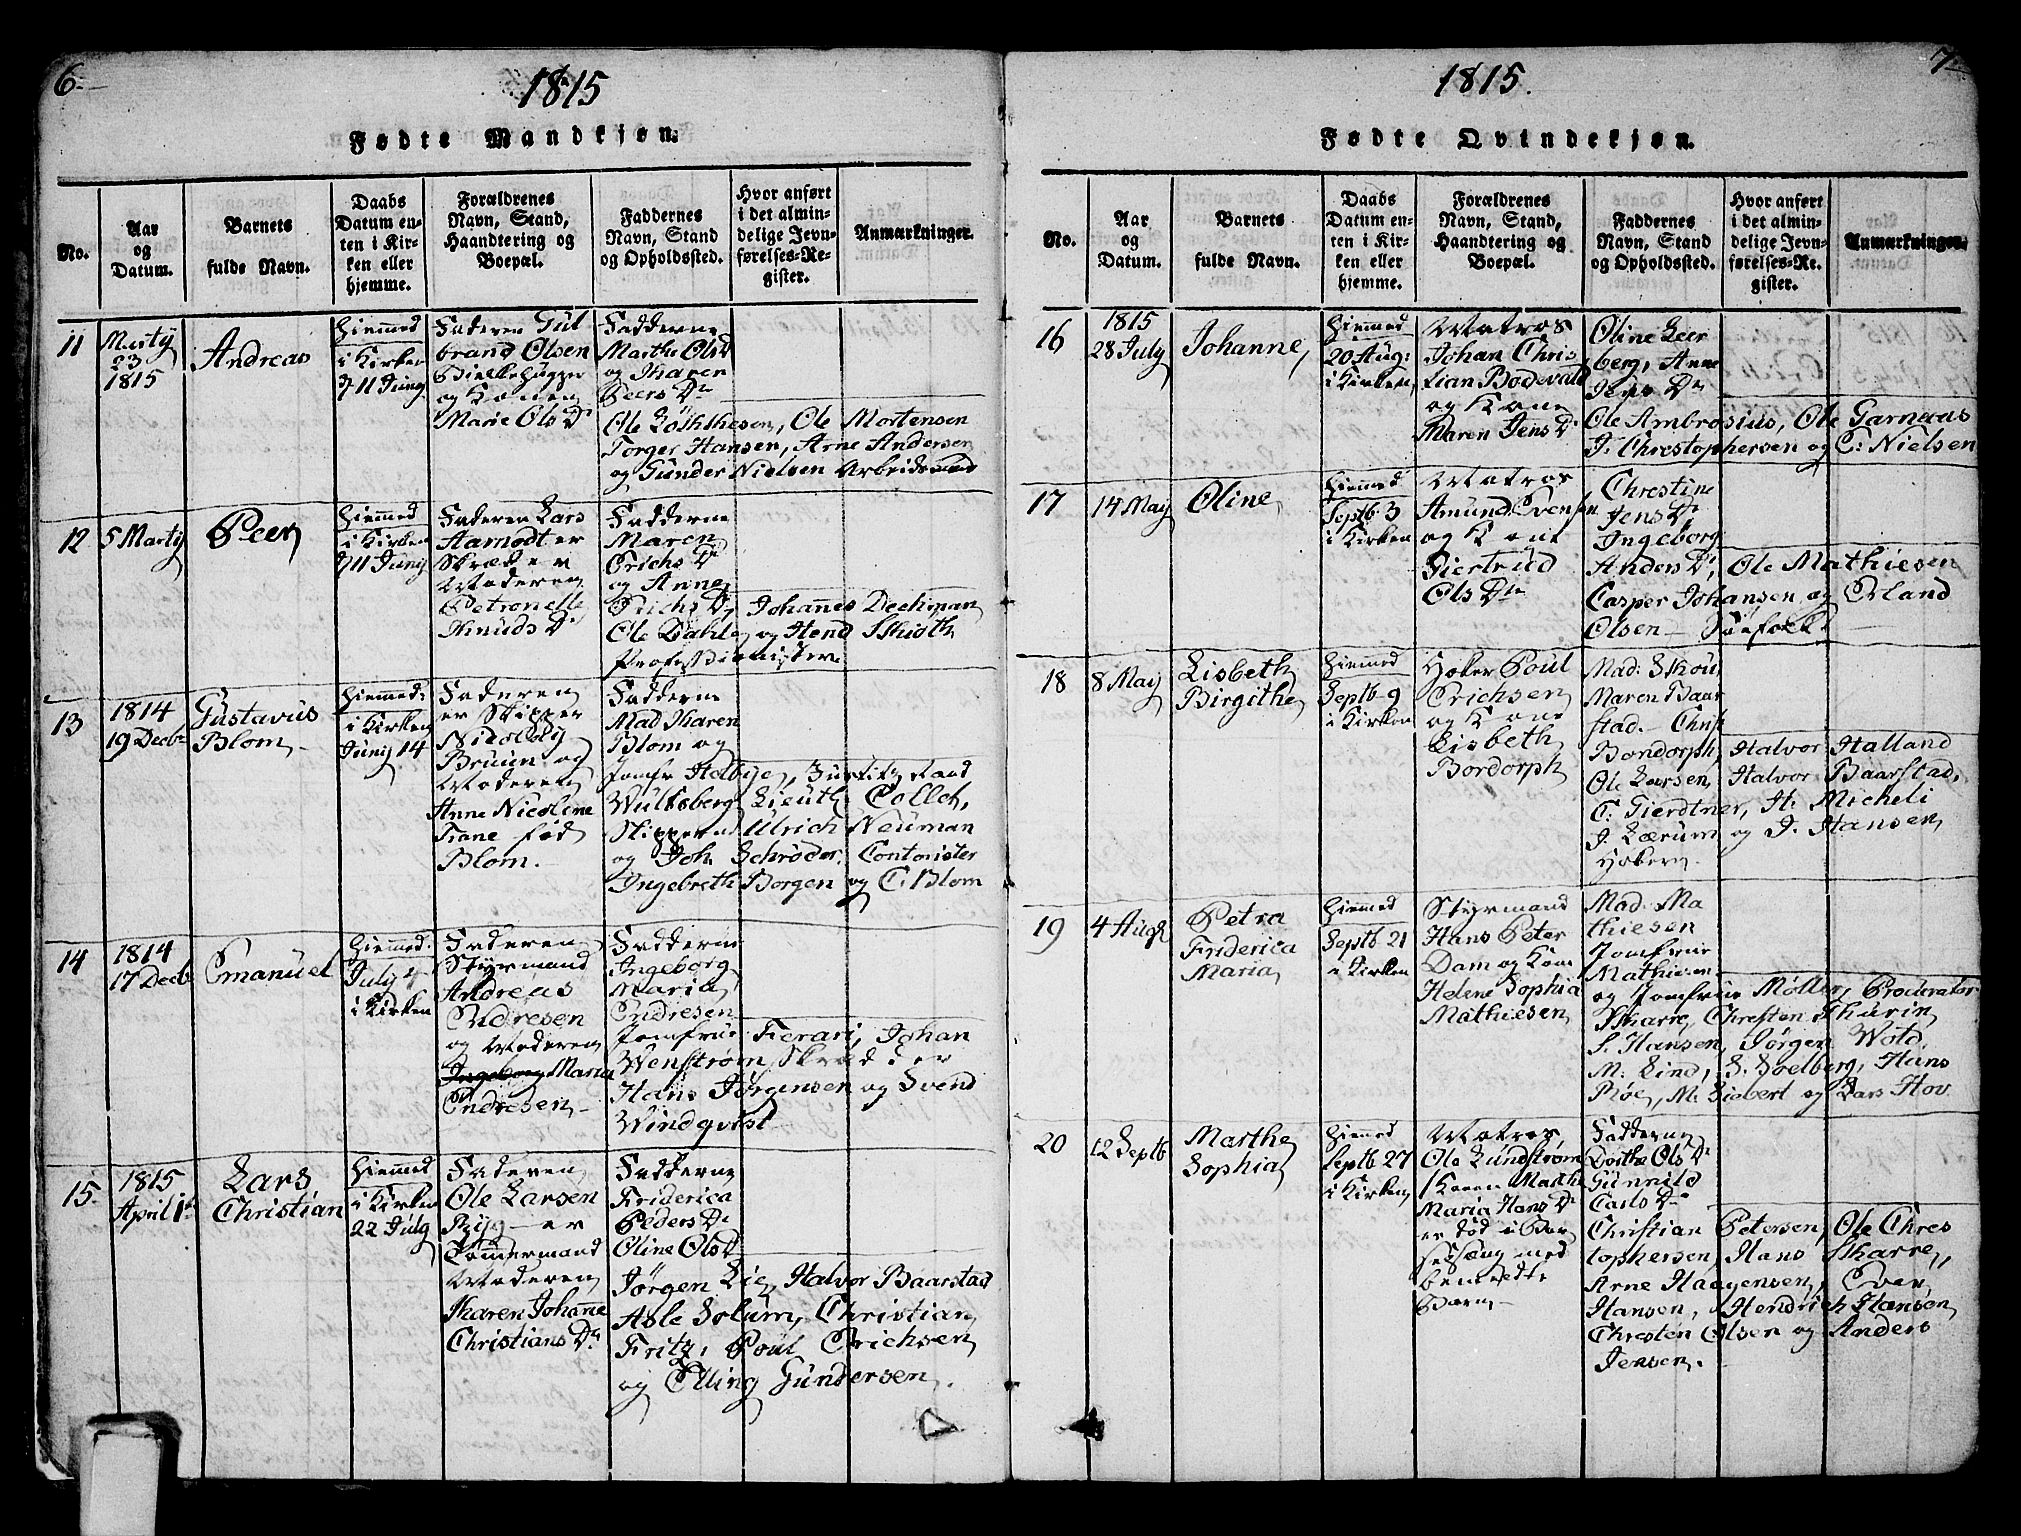 6.
1815
Fødte Mandkjøn.
No.
Aar
og
Datum.
Barnets
fulde Navn.
Daabs
Datum en-
ten i Kir-
ken eller
hjemme.
Forældrenes
Navn, Stand,
Haandtering og
Boepæl.
Faddernes
Navn, Stand
og Opholdssted.
Hvor anført
i det almin-
delige Jevn-
førelses-Re-
gister.
Anmærkninger.
11
Marty
23
1815
Andreas
Hiemmed
i Kirken
d 11 Juny
Faderen Gul
brand Olsen
og Konen
Marie Ols Dr
Fadderne
Marthe Ols Dr
og Karen
Peers Dr
Ole Mortensen
Torger Hansen, Arne Andersen
og Gunder Nielsen Arbeidsmænd
12
5 Marty
Peer
Hiemmed
i Kirken
d 11 Juny
Faderen Lars
Aamodt er
Skrædder
Moderen
Petronelle
Knuds Dr
Fadderne
Maren
Erichs Dr
og Anne
Erichs Dr, Johannes Dechman
Ole Dahl og Hend Skiøth
Professionister
13
1814
19 Decbr
Gustavus
Blom
Hiemmed:
i Kirken
Juny 14
Faderen
er Skipper
Nicolay
Bruun og
Moderen
Anne Nicoline
Trane fød
Blom.
Fadderne
Mad Karen
Blom og
Jomfr Helbye,
Wulfsberg Lieuth: Collet,
Skipperne Ulrich Neuman
og Joh: Schrøder, Contorister
Ingebreth Borgen og C. Blom
14
1814
17 Decbr
Emanuel
Hiemmed.
July 4
i Kirken
Faderen
Styrmand
Andreas
Endresen
og Moderen
Ingeborg Maria
Endresen
Fadderne
Ingeborg
Maria
Endresen
Jomfrue Ferrari, Johan
Wenstrøm, Skrædder
Hans Jørgensen og Svend
Windqvist
15.
1815
April 1
Lars
Christian
Hiemmed
i Kirken
22 July
Faderen
Ole Larsen
Ryg er
Tømmermand
Moderen
Karen Johanne
Christians Dr
Fadderne
Friderica
Peders Dr
Oline Ols Dr
Jørgen Lie, Halvor Baarstad
Asle Solum, Christian
Fritz, Poul Erichsen
og Elling Gundersen.
7
1815.
Fødte Qvindekjøn.
No.
Aar
og
Datum.
Barnets
fulde Navn.
Daabs
Datum en-
ten i Kir-
ken eller
hjemme.
Forældrenes
Navn, Stand,
Haandtering og
Boepæl.
Faddernes
Navn, Stand
og Opholdssted.
Hvor anført
i det almin-
delige Jevn-
førelses-Re-
gister.
Anmærkninger.
16
1815
28 July
Johanne,
Hiemmed
20 Aug:
i Kirken
Matros
Johan Chris
tian Bodevald
og Kone
Maren Jens Dr
Oline Leer
berg, Anne
Jens Dr
Ole Ambrosius, Ole Garnaas
J. Chrestophersen og C: Nielsen
17
14 May
Oline
Hiemmed
Septb 3
i Kirken
Matros
Amund Evensen
og Kone
Siertrud
Ols Dtr
Chrestine
Jens Dr
Ingeborg
Anders Dr, Ole Mathiesen
Casper Johansen og Erland
Olsen - Søefolk
18
8 May
Lisbeth
Birgithe
Hiemmed
Septb 9
i Kirken
Høker Poul
Erichsen
og Kone
Lisbeth
Bordorph
Mad: Skou
Maren Baar
stad.
Bondorph, Halvor Halland
Ole Larsen, Halvor Baarstad,
C. Gierdtner, H. Micheli
J. Lærum og J. Hansen
Høkern.
19
4 Aug
Petra
Friderica
Maria
Hiemmed
Septb 21
i Kirken
Styrmand
Hans Peter
Dam og Kone
Helene Sophia
Mathiesen
Mad: Ma
thiesen
Jomfrue
Mathiesen
og Jomfrue Møller, Procurator
Skarre, Chresten Thurin
S. Hansen, Jørgen Wold,
M. Lind, S. Soelberg, Hans
Røe, M. Siebert og Lars Hov
20
12 Septb
Marthe
Sophia
Hiemmed
Septb 27
i Kirken
Matros
Ole Lundstrøm
Konen Marthe
Maria Hans Dr
er død i Bar
selseng med
bemeldte
Barn
Fadderne
Dorthe Ols Dr
Gunnild
Carls Dr
Christian Petersen, Ole Chres
tophersen, Hans Skarre,
Arne Haagensen, Ever
Hansen, Hendrich Hansen,
Chresten Olsen og Anders
Jensen.